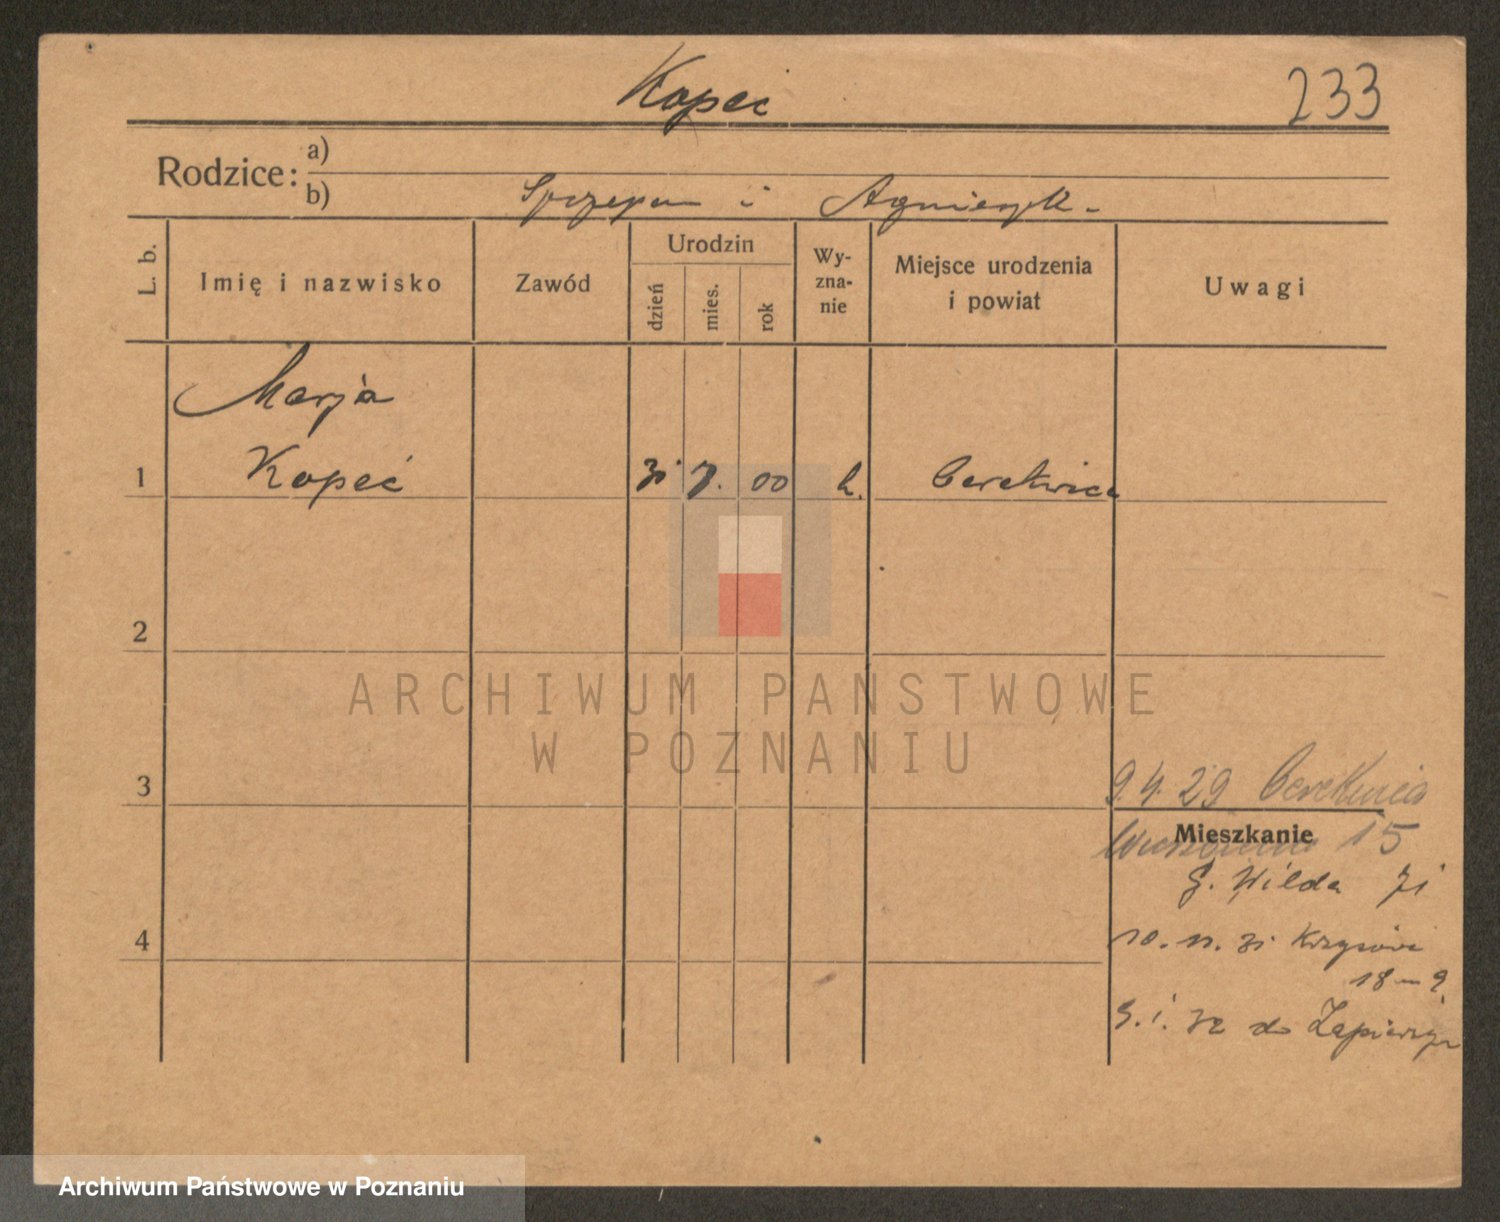 Kopeć
233
Rodzice:
a)
b) Szczepan i Agnieszk.
L. b.
Imię i nazwisko
Zawód
Urodzin
dzień
mies.
rok
Wy-
zna-
nie
Miejsce urodzenia
i powiat
Uwagi
Marja
1 Kopeć 31 7. 00 k. Cerekwica
2
ARCHIWUM PAŃSTWOWE
W POZNANIU
3
9.4.29 Cerekwica
Mieszkanie
15
G. Wilda 71
4
10. 11. 31
18 m 9
5. 1. 32 do
Archiwum Państwowe w Poznaniu